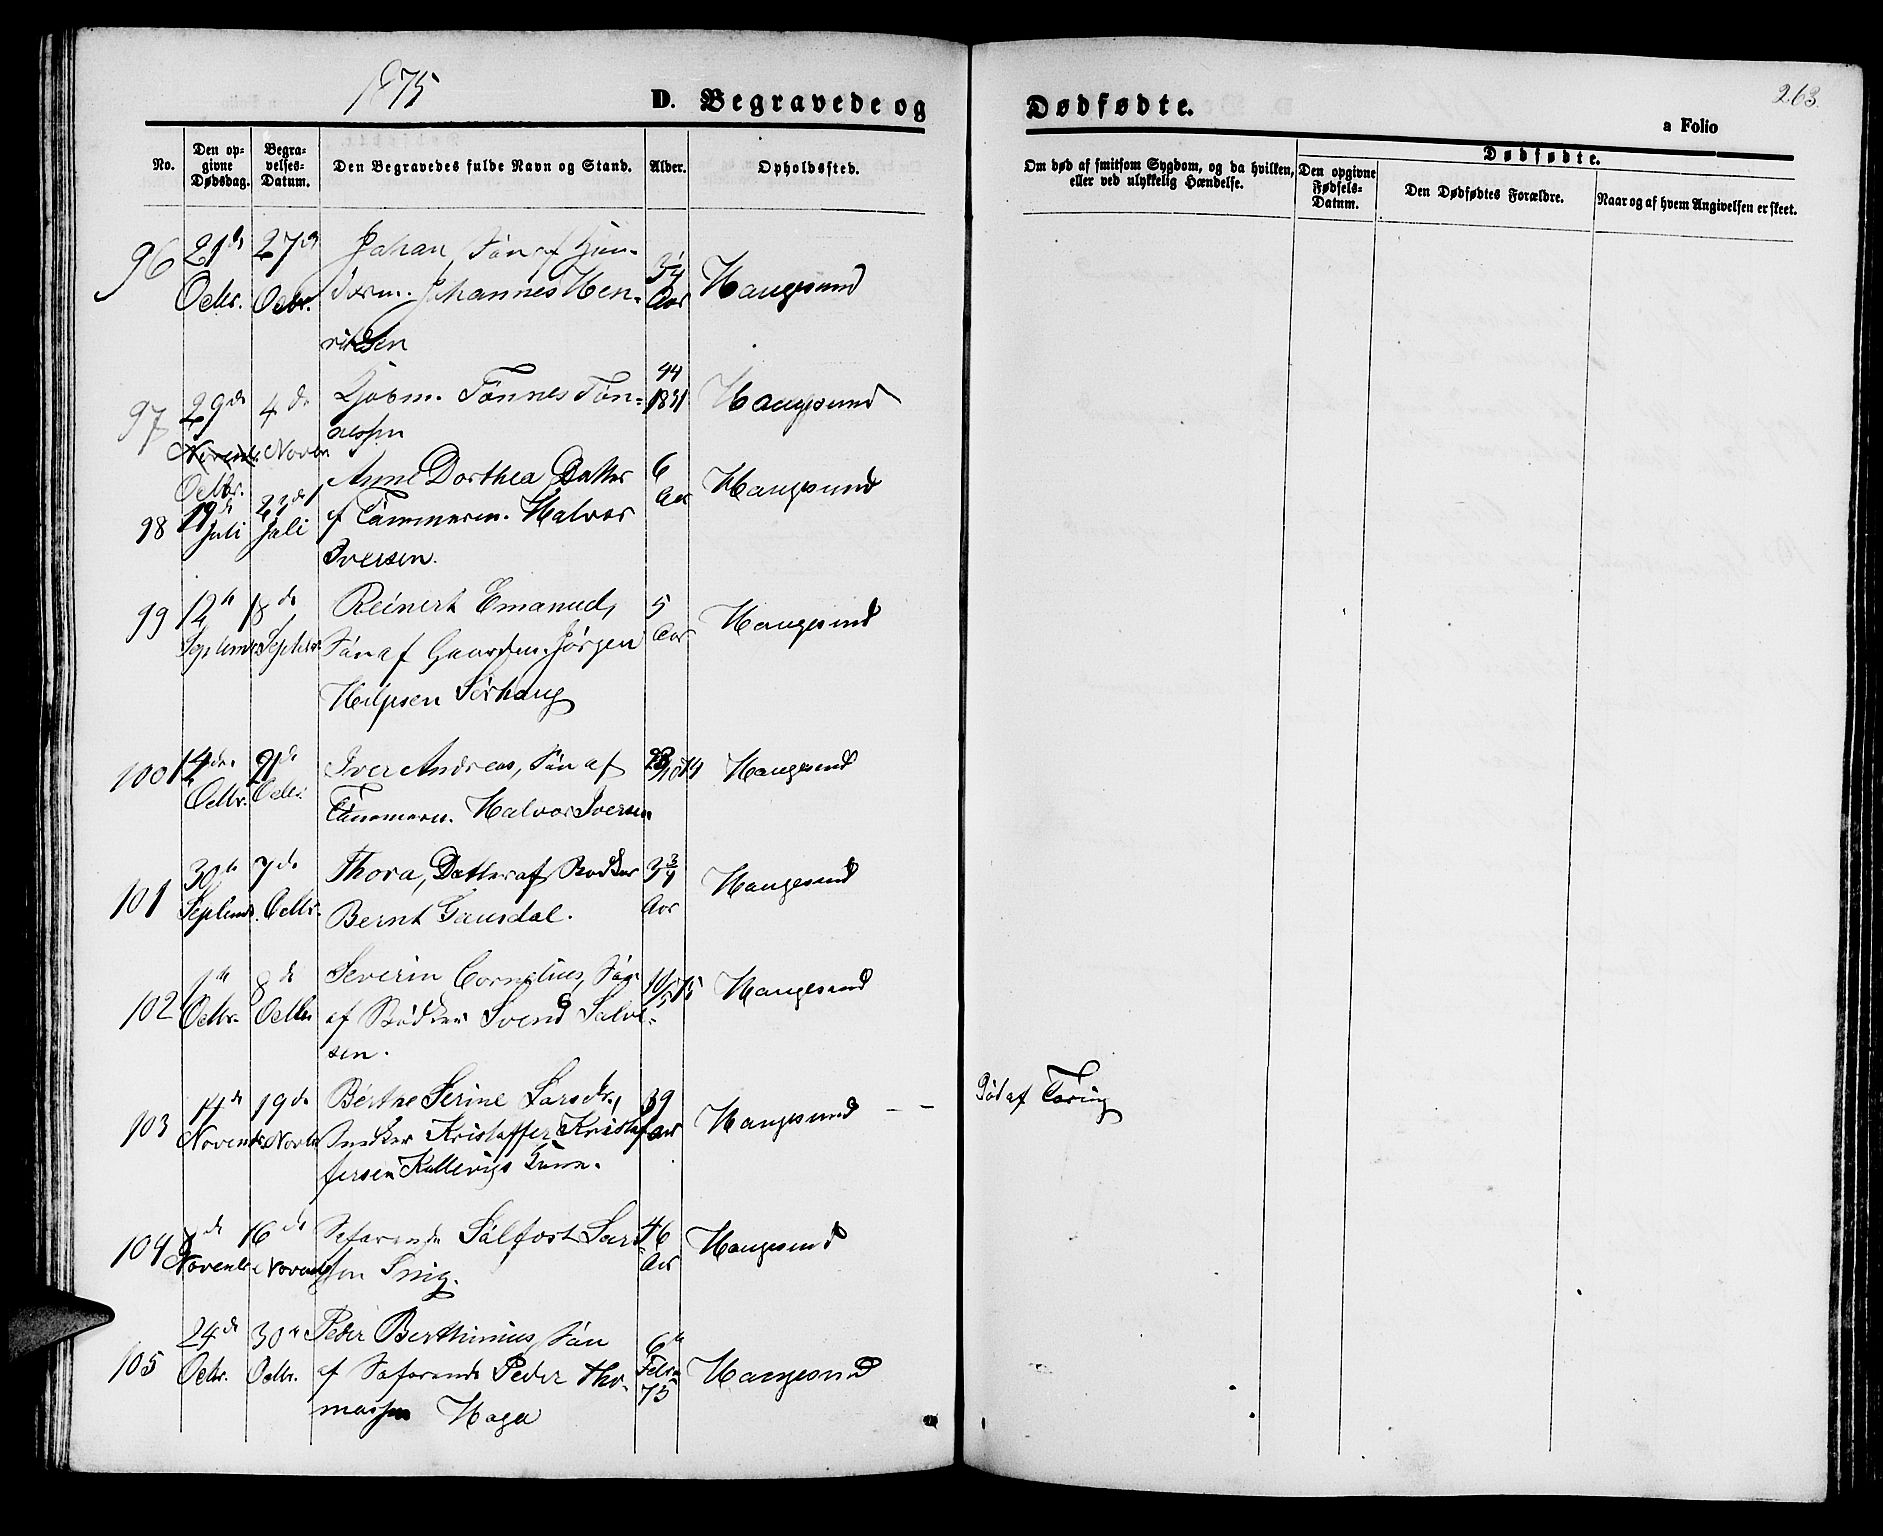 1875
D. Begravede og
Dødfødte.
263.
a Folio
No.
Den op-
givne
Dødsdag.
Begra-
velses-
Datum.
Den Begravedes fulde Navn og Stand.
Alder.
Opholdssted.
Om død af smitsom Sygdom, og da hvilken,
eller ved ulykkelig Hændelse.
Dødfødte.
Den opgivne
Fødsels-
Datum.
Den Dødfødtes Forældre.
Naar og af hvem Angivelsen er skeet.
96 21de 27de Johan, Søn af
Octbr. Octbr. Johannes Hen- 3 1/4 Aar Haugesund
riksen
97 29de 4de Tønnes Tøn- 44 1831 Haugesund
nessen
Novembr. Novbr
Octbr.
98 19de Juli 23de Juli Anne Dorthea Datter 6 Aar Haugesund
af Tømmerm. Halvor
Iversen.
99 12te 18de Reinert Emanuel, 5 Aar Haugesund
Septembr Septbr. Søn af Gaardm. Jørgen
Sørhaug
100 14de 21de Iver Andreas, Søn af 28/10 74 Haugesund
Octbr. Octbr. Tømmerm. Halvor Iversen
101 30te 7de Thora, Datter af Bødker 3 3/4 Haugesund
Septembr. Octbr. Bernt Gausdal. Aar
102 1te 8de Severin Cornelius, Søn 10/5 75 Haugesund
Octbr. Octbr af Bødker Svend Salve-
sen.
103 14de 19de Berthe Serine Larsdtr., 39 Haugesund – –
Novembr. Novbr Snedker Kristoffer Kristof- Aar
fersen Kallevigs
Død af Tæring
104 8de 16de Søfarende Salfast Lar- 46 Haugesund
Novembr Novembr sen Aar
105 24de 30te Peder Berthinius, Søn 6te Haugesund
Octbr. Octbr. af Søfarende Peder Tho- Febr. 75
massen Haga